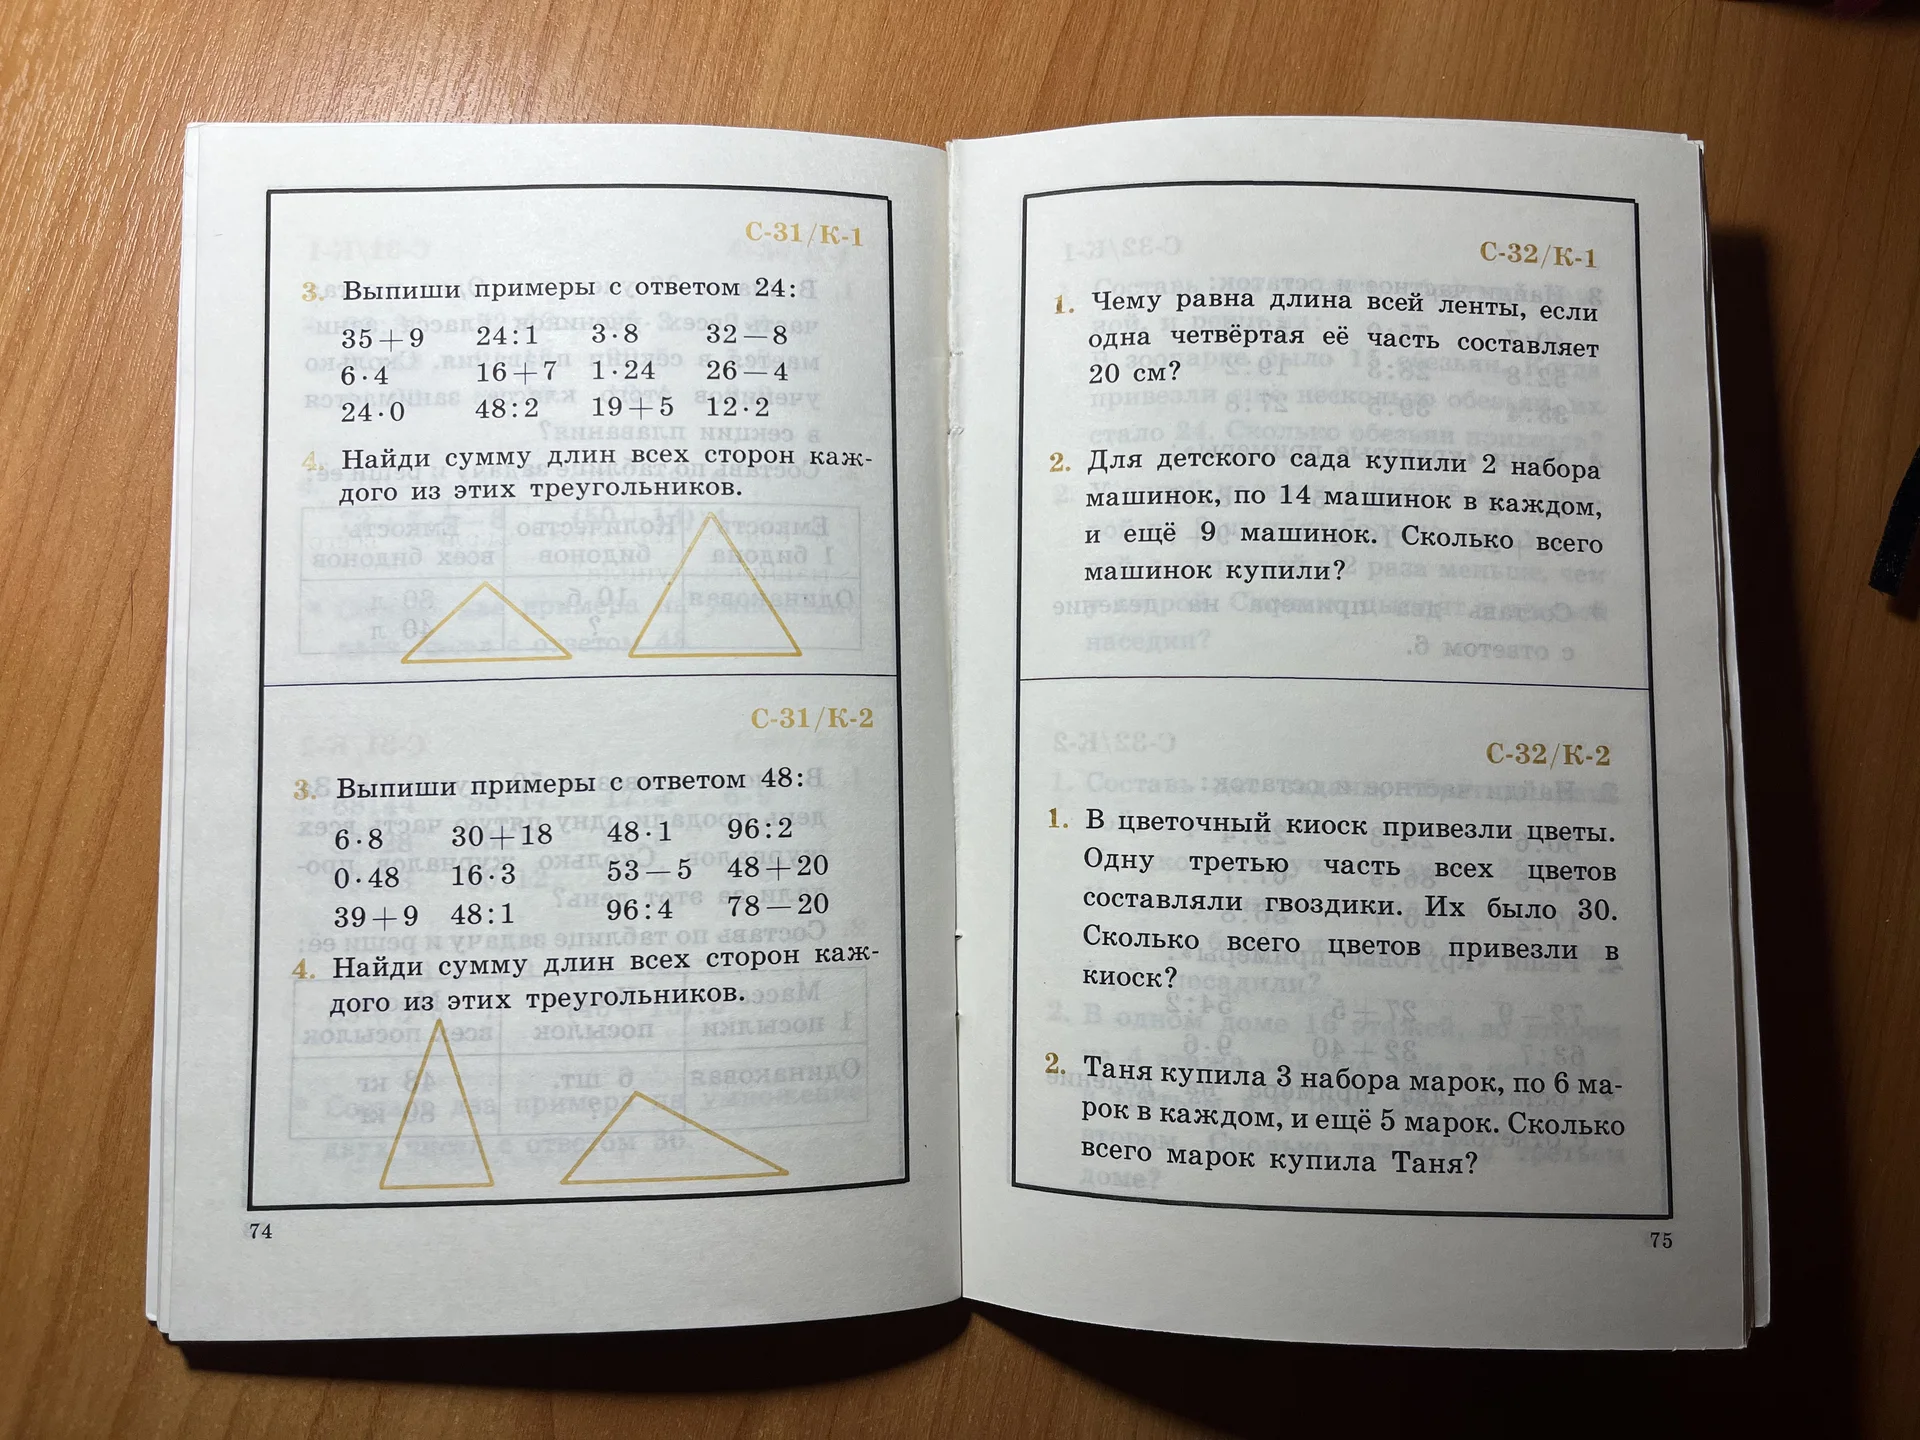 С-31/К-1
3. Выпиши примеры с ответом 24:
35+9 24:1 3·8 32−8
6·4 16+7 1·24 26−4
24·0 48:2 19+5 12·2
4. Найди сумму длин всех сторон каж-
дого из этих треугольников.
С-31/К-2
3. Выпиши примеры с ответом 48:
6·8 30+18 48·1 96:2
0·48 16·3 53−5 48+20
39+9 48:1 96:4 78−20
4. Найди сумму длин всех сторон каж-
дого из этих треугольников.
74
С-32/К-1
1. Чему равна длина всей ленты, если
одна четвёртая её часть составляет
20 см?
2. Для детского сада купили 2 набора
машинок, по 14 машинок в каждом,
и ещё 9 машинок. Сколько всего
машинок купили?
С-32/К-2
1. В цветочный киоск привезли цветы.
Одну третью часть всех цветов
составляли гвоздики. Их было 30.
Сколько всего цветов привезли в
киоск?
2. Таня купила 3 набора марок, по 6 ма-
рок в каждом, и ещё 5 марок. Сколько
всего марок купила Таня?
75